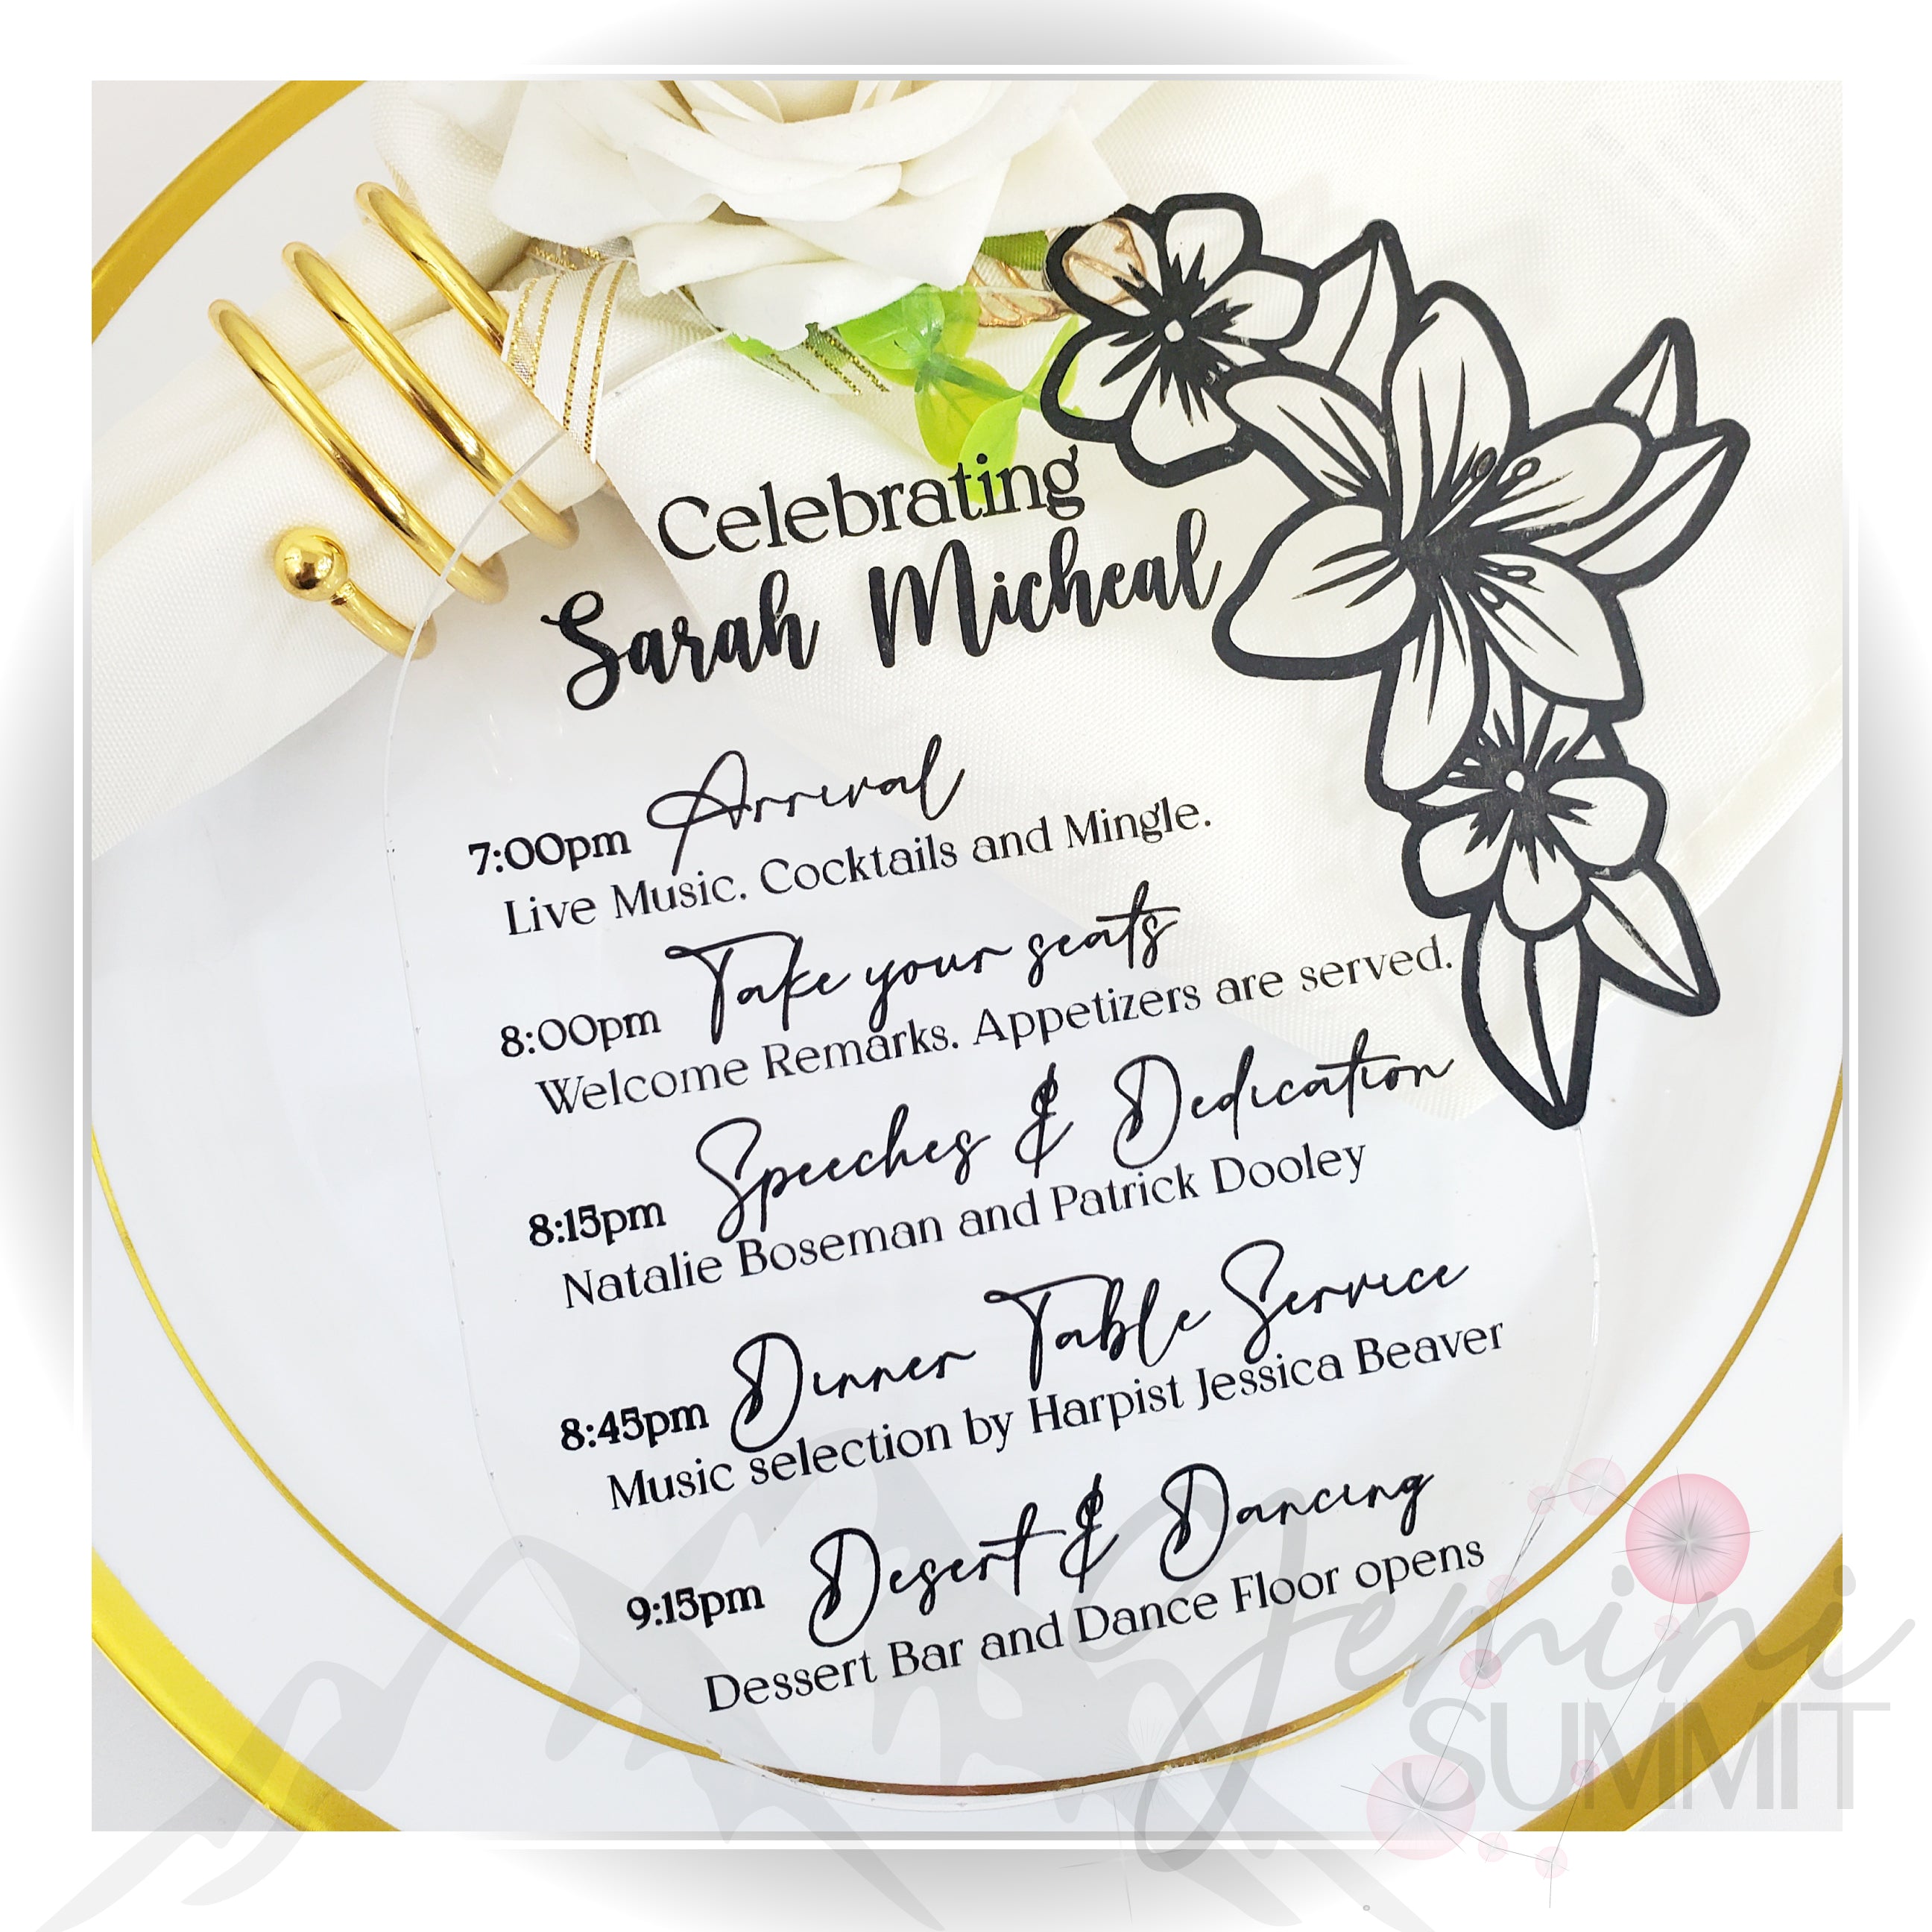 Celebrating
Sarah Micheal
7:00pm Arrival
Live Music. Cocktails and Mingle.
8:00pm Take your seats
Welcome Remarks. Appetizers are served.
8:15pm Speeches & Dedication
Natalie Boseman and Patrick Dooley
8:45pm Dinner Table Service
Music selection by Harpist Jessica Beaver
9:15pm Desert & Dancing
Dessert Bar and Dance Floor opens
Gemini
SUMMIT